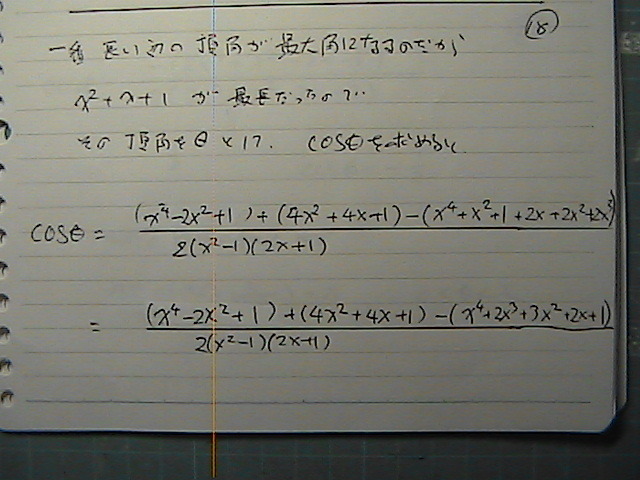 18
一番長い辺の頂角が最大角になるのだから
x²+x+1 が最長だったので
その頂角をθとして、cosθを求めると
cosθ = \frac{(x⁴-2x²+1)+(4x²+4x+1)-(x⁴+x²+1+2x+2x²+2x³)}{2(x²-1)(2x+1)}
= \frac{(x⁴-2x²+1)+(4x²+4x+1)-(x⁴+2x³+3x²+2x+1)}{2(x²-1)(2x+1)}